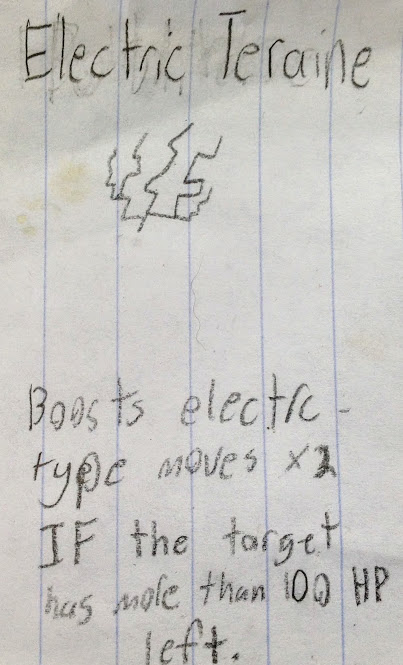 Electric Teraine
Boosts electric-
type moves x2
IF the target
has more than 100 HP
left.